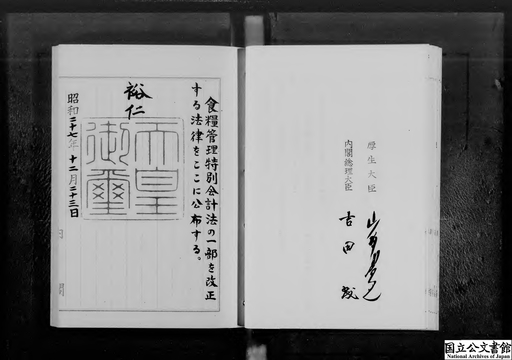 食糧管理特別会計法の一部を改正
する法律をここに公布する。
裕仁
天皇
御璽
昭和二十七年十二月二十三日
内閣
厚生大臣
内閣総理大臣
吉田茂
国立公文書館
National Archives of Japan